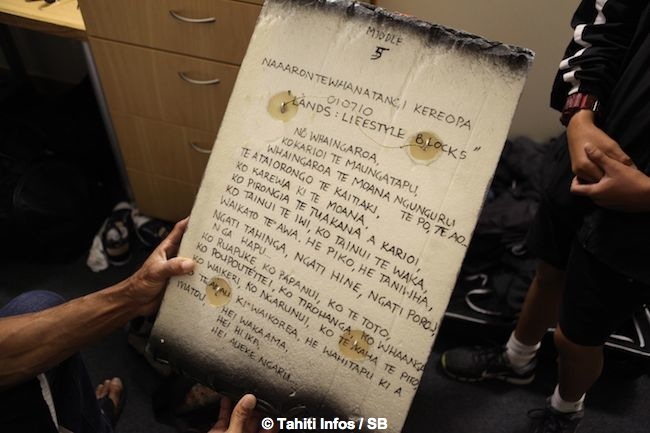 MIDDLE
5
NAAARONTEWHANATANGI KEREOPA
010710
"LANDS: LIFESTYLE BLOCKS"
NŌ WHAINGAROA,
KO KARIOI TE MAUNGATAPU,
WHAINGAROA TE MOANA NGUNGURU
TE ATAIORONGO TE KAITIAKI, TE PO, TE AO.
KO KAREWA KI TE MOANA,
KO PIRONGIA TE TUAKANA A KARIOI,
KO TAINUI TE IWI, KO TAINUI TE WAKA,
WAIKATO TE AWA. HE PIKO, HE TANIWHA,
NGATI TAHINGA, NGATI HINE, NGATI POROU
NGA HAPU.
KO RUAPUKE KO PAPANUI, KO TE TOTO,
KO POUPOUTETEI, KO TIROHANGA, KO WHAANGA
KO WAIKERI, KO NGARUNUI, KO TE KAHA TE PIRO
TE AHI KI WAIKOREA. HE WAHITAPU KI A
MATOU.
HEI WAKAAMA,
HEI HI IKA,
HEI MUEKE NGARU.
© Tahiti Infos / SB